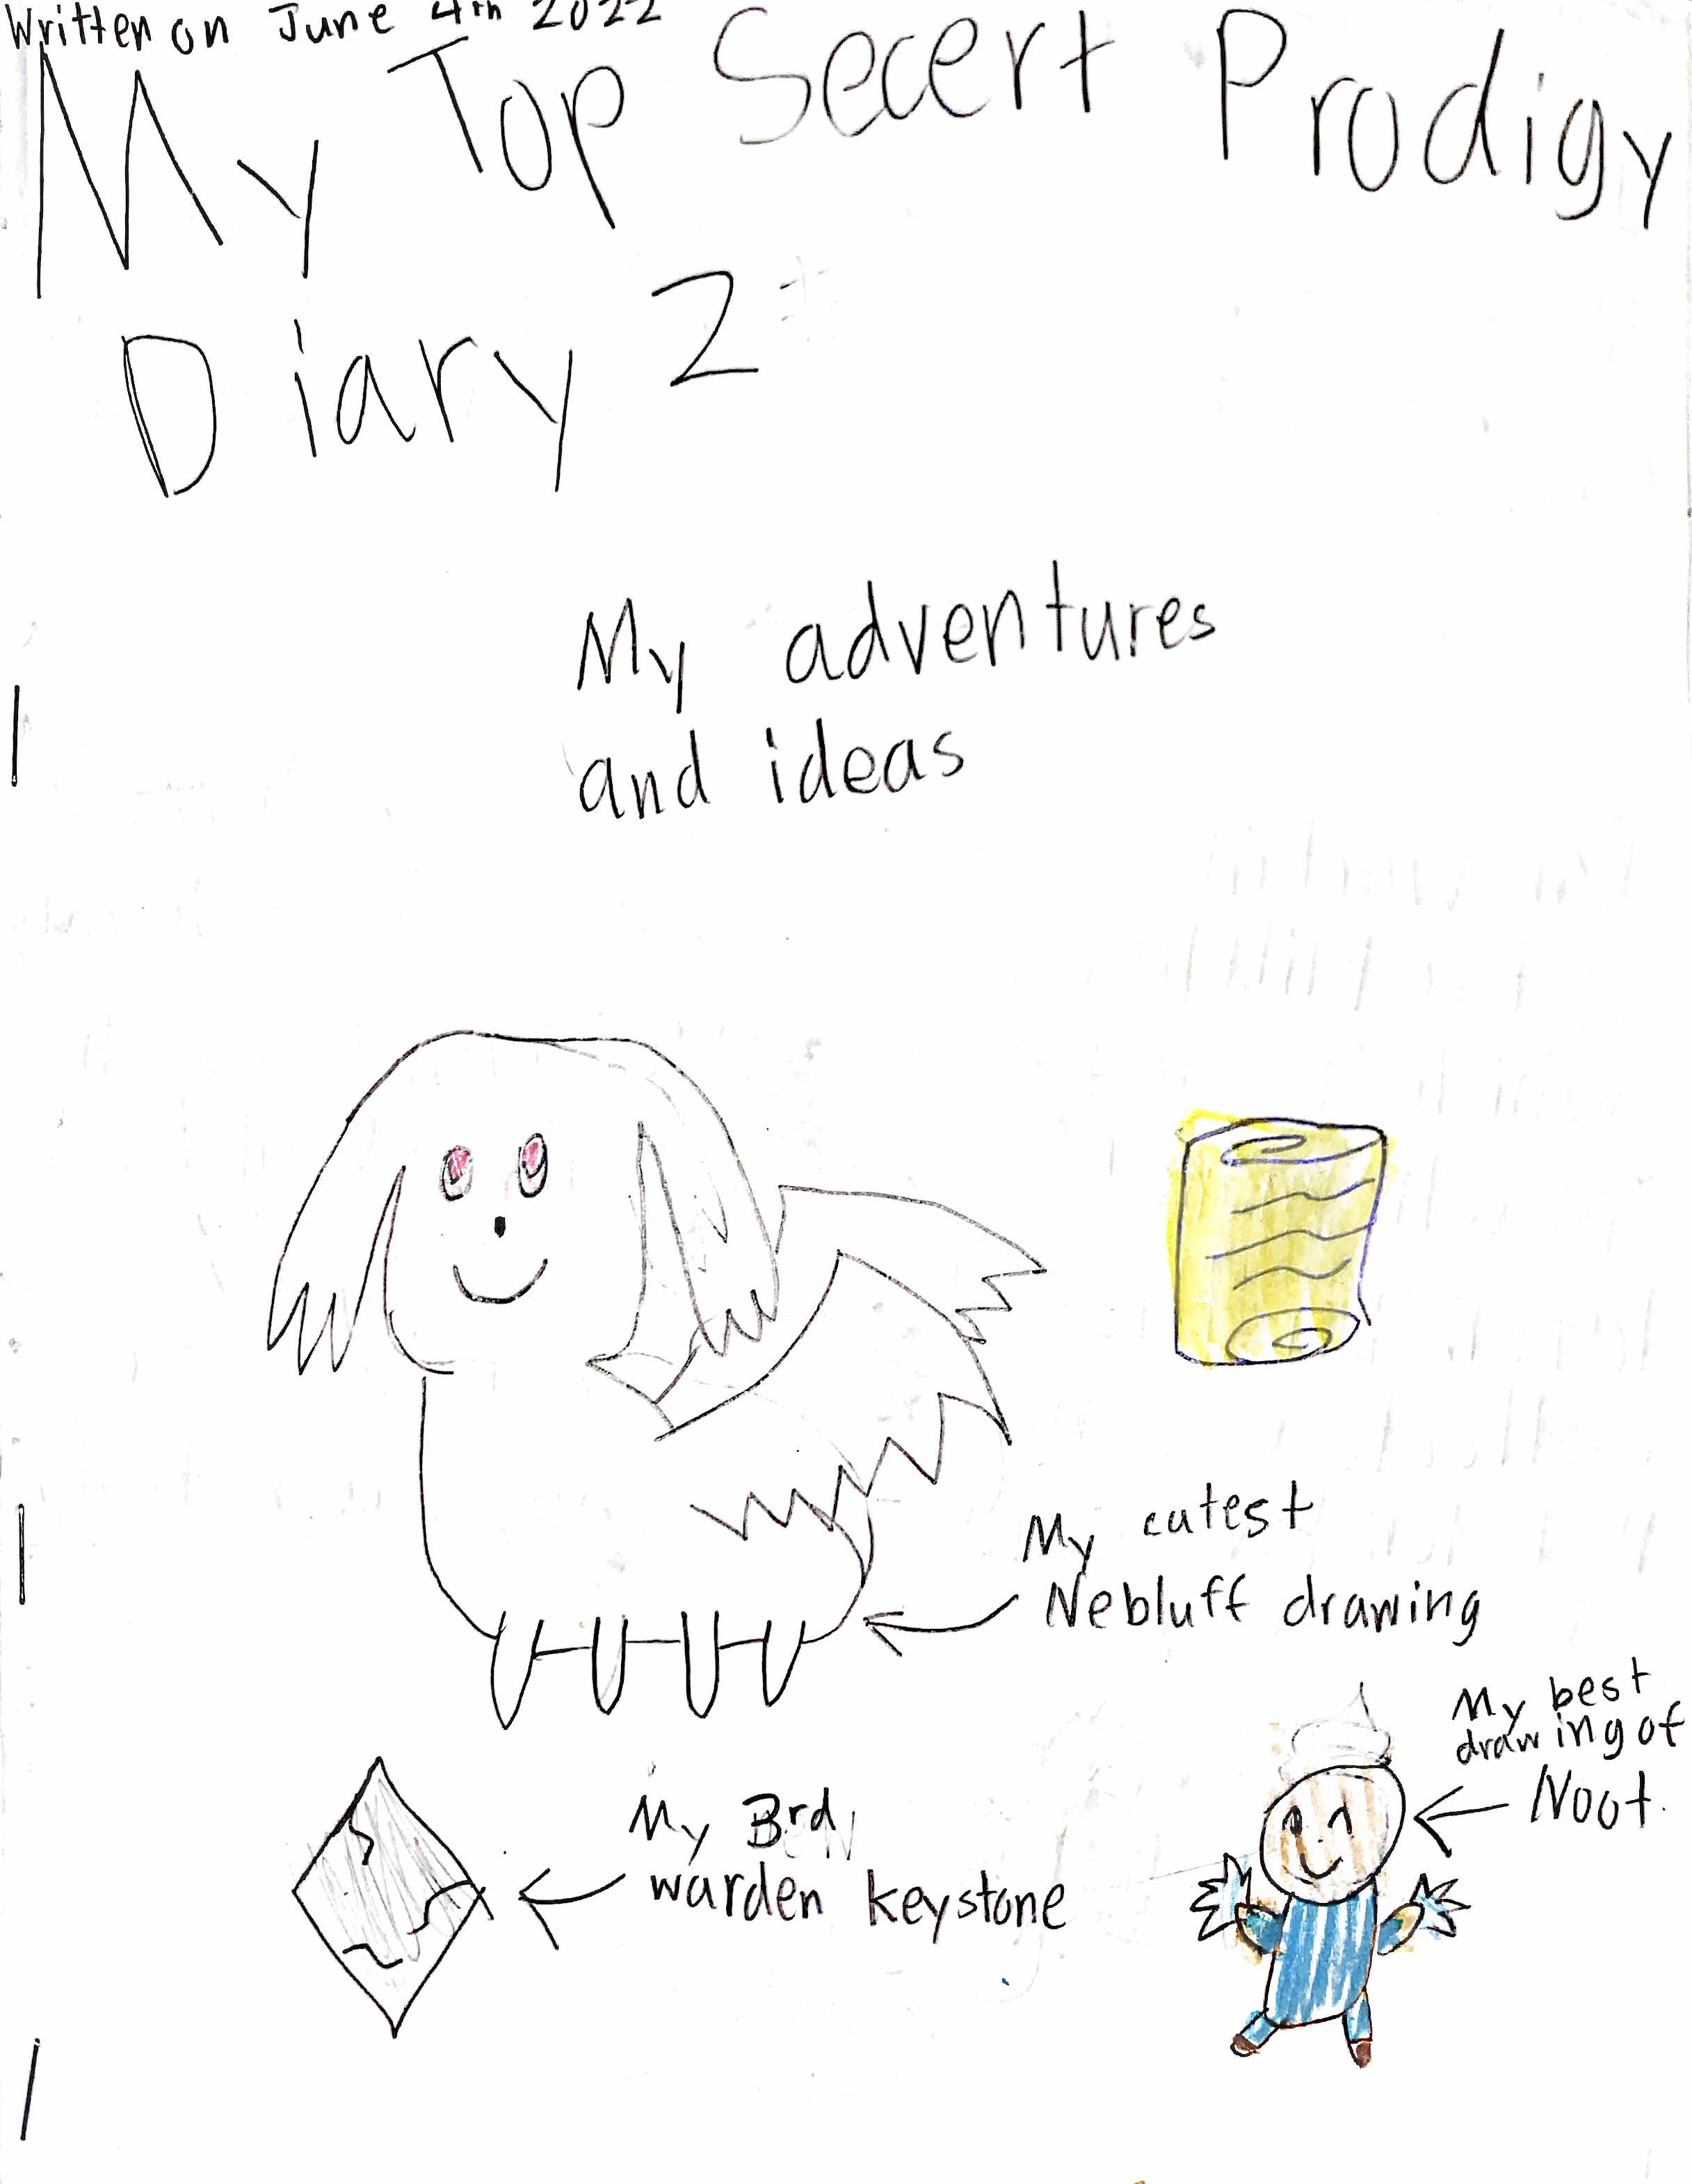 Written on June 4th 2022
My Top Secert Prodigy
Diary 2
My adventures
and ideas
My cutest
Nebluff drawing
My best
drawing of
Noot.
My 3rd
warden keystone